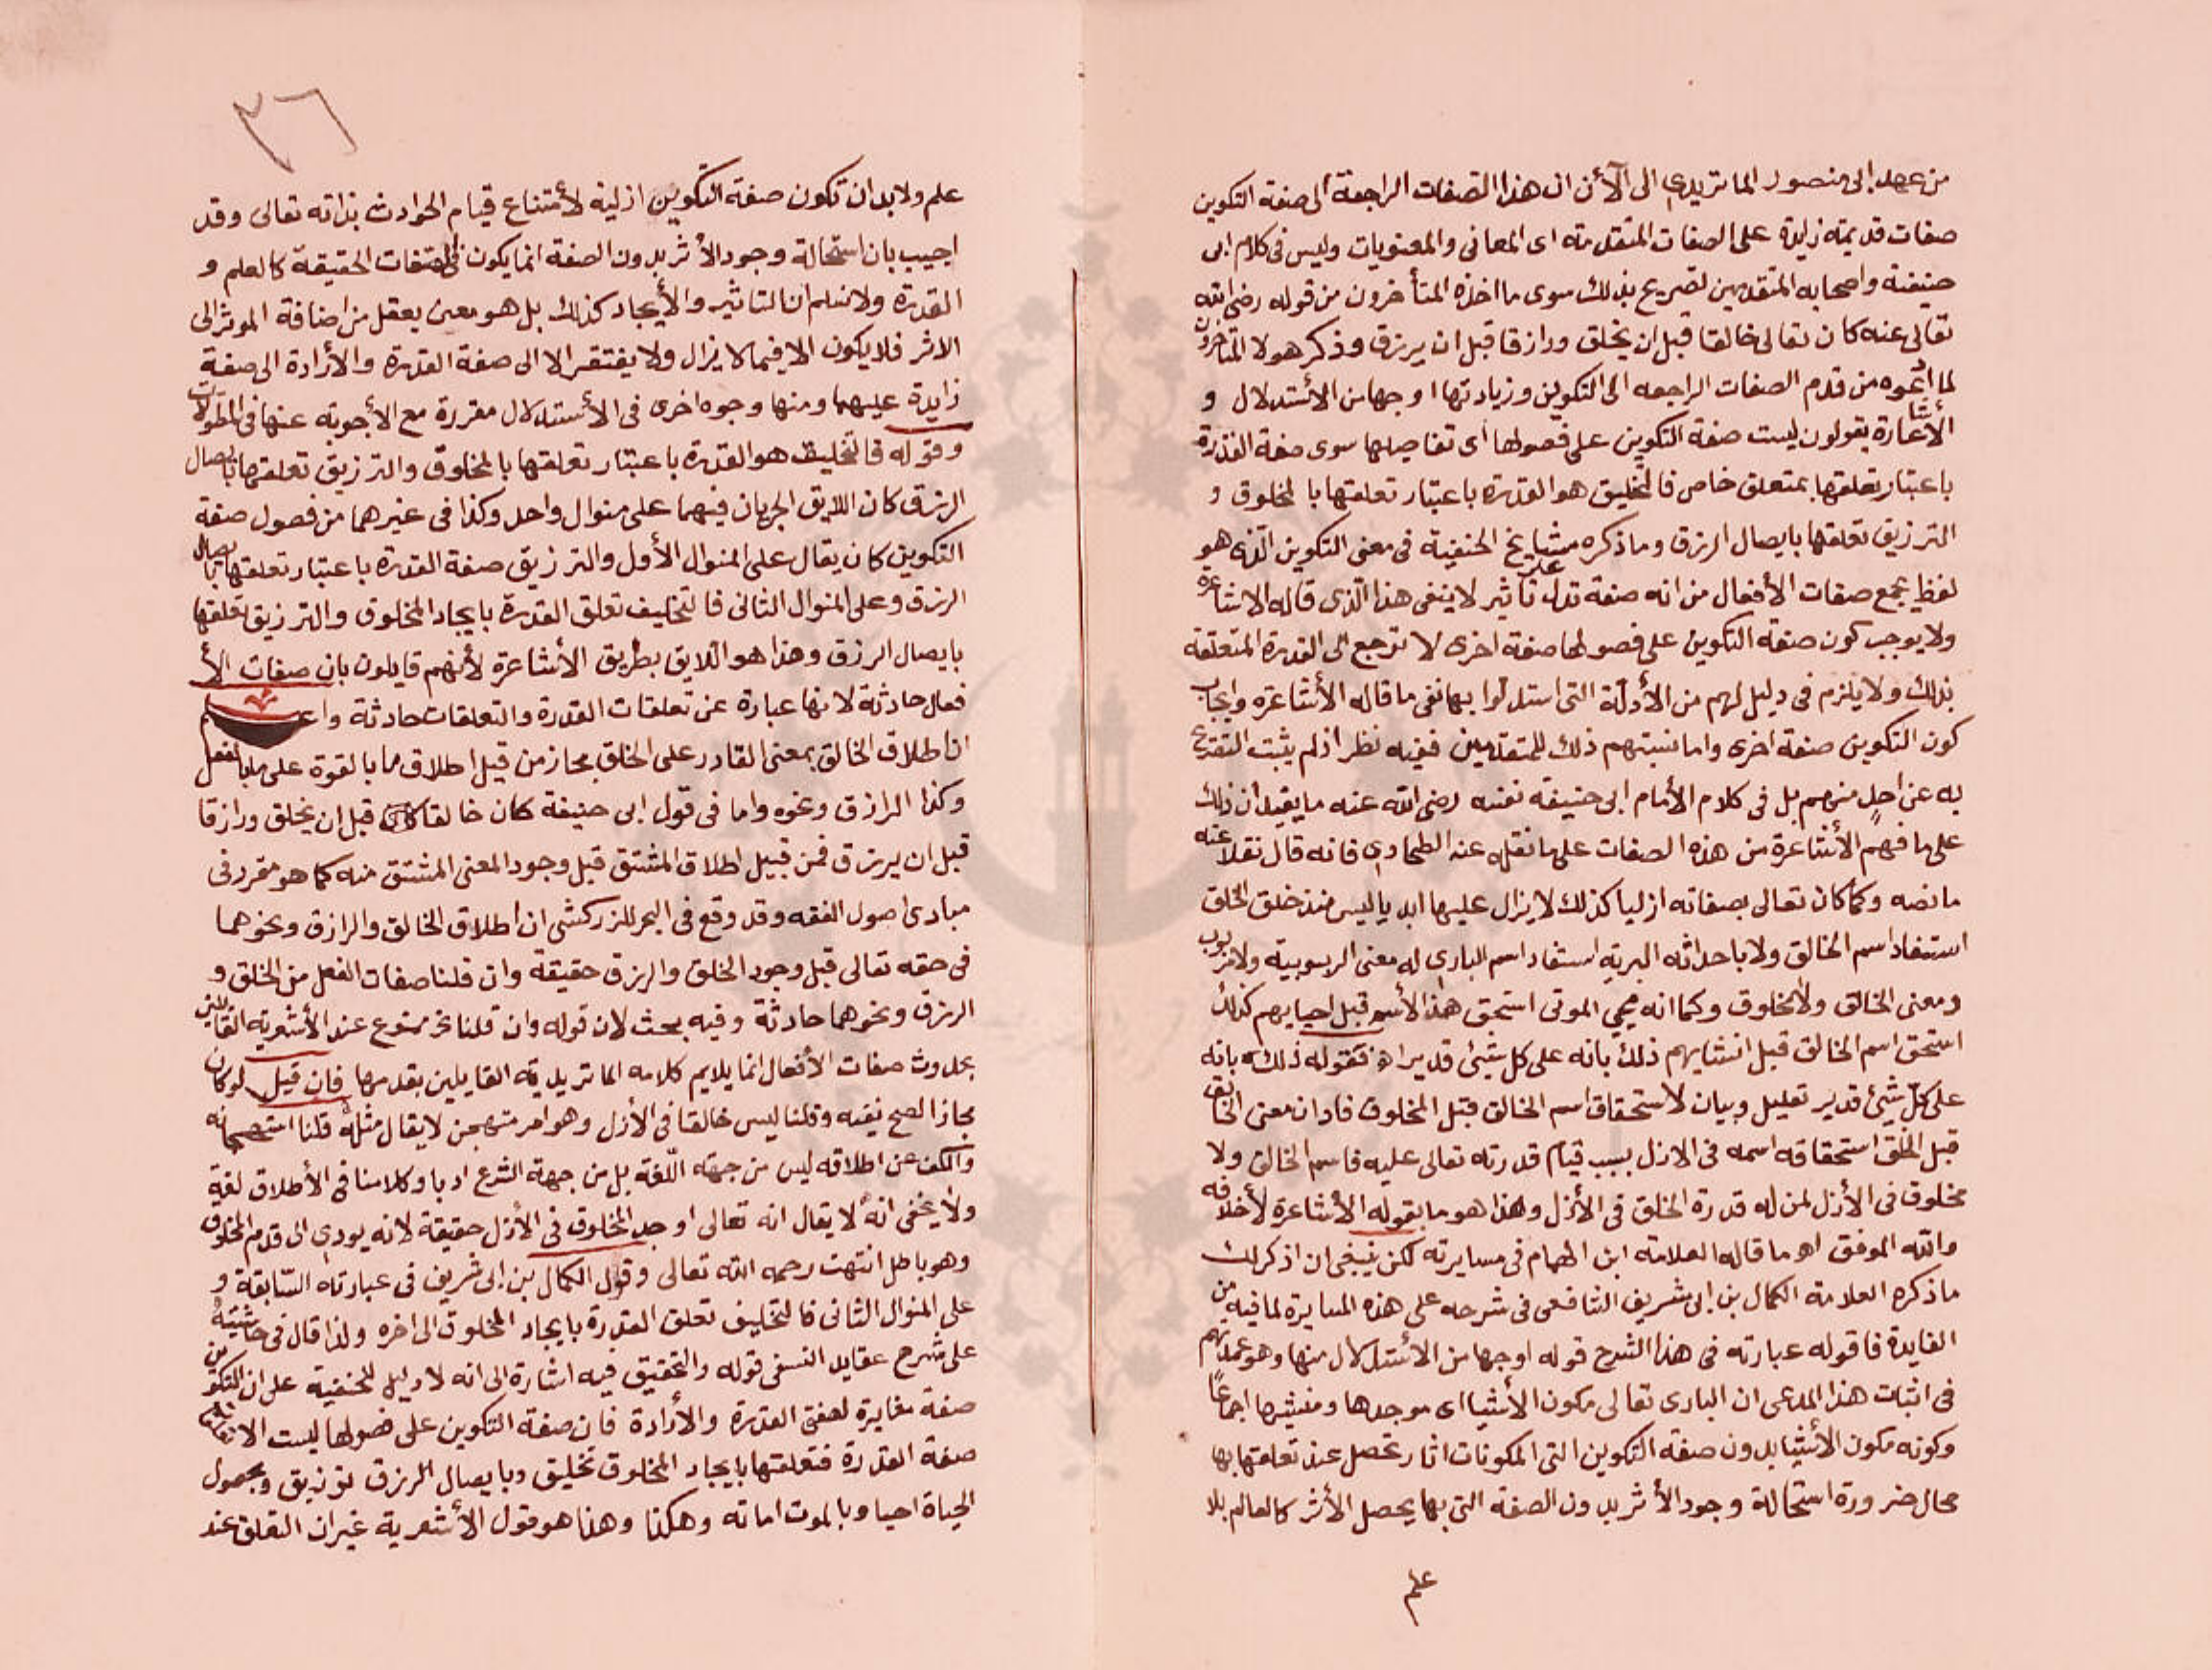 من عهد ابى منصور الماتريدي الى الأن ان هذا الصفات الراجعة الى صفة التكوين
صفات قديمة زايدة على الصفات المتقدمة اى المعانى والمعنويات وليس فى كلام ابى
حنيفة واصحابه المتقدمين تصريح بذلك سوى ما اخذه المتأخرون من قوله رضى الله
تعالى عنه كان تعالى خالقا قبل ان يخلق ورازقا قبل ان يرزق وذكر هولا المتاخرون
لما ادعوه من قدم الصفات الراجعه الى التكوين وزيادتها اوجها من الأستدلال و
الأشاعرة يقولون ليست صفة التكوين على فصولها اى تفاصيلها سوى صفة القدرة
باعتبار تعلقها بمتعلق خاص فالتخليق هو القدرة باعتبار تعلقها بالمخلوق و
الترزيق تعلقها بايصال الرزق وما ذكره مشايخ الحنفية فى معنى التكوين الذى هو
لفظ يجمع صفات الأفعال من انه صفة تدل على تأثير لا ينفى هذا الذى قاله الاشاعرة
ولا يوجب كون صفة التكوين على فصولها صفة اخرى لا ترجع الى القدرة المتعلقة
بذلك ولا يلزم فى دليل لهم من الأدلة التى استدلوا بها نفى ما قاله الأشاعره وايجاب
كون التكوين صفة اخرى واما نسبتهم ذلك للمتقدمين ففيه نظر اذ لم يثبت التصريح
به عن احد منهم بل فى كلام الأمام ابى حنيفة نفسه رضى الله عنه ما يفيد ان ذلك
على ما فهم الأشاعرة من هذه الصفات على ما نقله عنه الطحاوي فانه قال نقلا عنه
ما نصه وكما كان تعالى بصفاته ازليا كذلك لا يزال عليها ابديا ليس منذ خلق الخلق
استفاد اسم الخالق ولا باحداثه البرية استفاد اسم البارى له معنى الربوبية ولا مربوب
ومعنى الخالق ولا مخلوق وكما انه محي الموتى استحق هذا الأسم قبل احيايهم كذلك
استحق اسم الخالق قبل انشايهم ذلك بانه على كل شئ قدير اه فقوله ذلك بانه
على كل شئ قدير تعليل وبيان لاستحقاق اسم الخالق قبل المخلوق فاد ان معنى الخالق
قبل الخلق استحقاقه اسمه فى الازل بسبب قيام قدرته تعالى عليه فاسم الخالق ولا
مخلوق فى الأزل لمن له قدرة الخلق فى الأزل وهذا هو ما يقوله الأشاعرة لأخلافه
والله الموفق اه ما قاله العلامة ابن الهمام فى مسايرته لكن ينبغى ان اذكر لك
ما ذكره العلامة الكمال بن ابى شريف الشافعى فى شرحه على هذه المسايرة لما فيه من
الفايدة فاقوله عبارته فى هذا الشرح قوله اوجها من الأستدلال منها وهو عمدتهم
فى اثبات هذا المدعى ان البارى تعالى مكون الأشيا اى موجدها ومنشيها اجماعًا
وكونه مكون الأشيا بدون صفة التكوين التى المكونات اثار تحصل عند تعلقها بها
محال ضرورة استحالة وجود الأثر بدون الصفة التى بها يحصل الأثر كالعالم بلا
علم
٣٦
علم ولا بد ان تكون صفة التكوين ازلية لأمتناع قيام الحوادث بذاته تعالى وقد
اجيب بان استحالة وجود الأثر بدون الصفة انما يكون فى الصفات الحقيقة كالعلم و
القدرة ولا نسلم ان التاثير والأيجاد كذلك بل هو معنى يعقل من اضافة الموثر الى
الاثر فلا يكون الا فيما لا يزال ولا يفتقر الا الى صفة القدرة والأرادة الى صفة
زايدة عليهما ومنها وجوه اخرى فى الأستدلال مقررة مع الأجوبة عنها فى المطولات
وقوله فالتخليق هو القدرة باعتبار تعلقها بالمخلوق والترزيق تعلقها بايصال
الرزق كان اللايق الجريان فيهما على منوال واحد وكذا فى غيرهما من فصول صفة
التكوين كان يقال على المنوال الأول والترزيق صفة القدرة باعتبار تعلقها بايصال
الرزق وعلى المنوال الثانى فالتخليف تعلق القدرة بايجاد المخلوق والترزيق تعلقها
بايصال الرزق وهذا هو اللايق بطريق الأشاعرة لأنهم قايلون بان صفات الأ
فعال حادثة لانها عبارة عن تعلقات القدرة والتعلقات حادثة واعلم
ان اطلاق الخالق بمعنى القادر على الخلق مجاز من قبل اطلاق ما بالقوة على ما بالفعل
وكذا الرازق ونحوه واما فى قول ابى حنيفة كان خالقا قبل ان يخلق ورازقا
قبل ان يرزق فمن قبيل اطلاق المشتق قبل وجود المعنى المشتق منه كما هو مقرر فى
مبادى اصول الفقه وقد وقع فى البحر للزركشى ان اطلاق الخالق والرازق ونحوهما
فى حقه تعالى قبل وجود الخلق والرزق حقيقة وان قلنا صفات الفعل من الخلق و
الرزق ونحوهما حادثة وفيه بحث لان قوله وان قلنا الخ ممنوع عند الأشعرية القائلين
بحدوث صفات الأفعال انما يلايم كلامه الماتريدية القايلين بقدمها فان قيل لو كان
مجازا لصح نفيه وقلنا ليس خالقا فى الأزل وهو امر مستهجن لا يقال مثله قلنا
والكف عن اطلاقه ليس من جهة اللغة بل من جهة الشرع ادبا وكلامنا فى الأطلاق لغة
ولا يخفى انه لا يقال انه تعالى اوجد المخلوق فى الأزل حقيقة لانه يودى الى قدم المخلوق
وهو باطل انتهت رحمه الله تعالى وقول الكمال بن ابى شريف فى عبارته السابقة و
على المنوال الثانى فالتخليف تعلق القدرة بايجاد المخلوق الى اخره ولذا قال فى حاشيته
على شرح عقايد النسفى قوله والتحقيق فيه اشارة الى انه لا دليل للحنفية على ان التكوين
صفة مغايرة لصفتى القدرة والأرادة فان صفة التكوين على فصولها ليست الا
صفة القدرة فتعلقها بايجاد المخلوق تخليق وبايصال الرزق توزيق وبحصول
الحياة احيا وبالموت اماته وهكذا وهذا هو قول الأشعرية غير ان التعلق عند